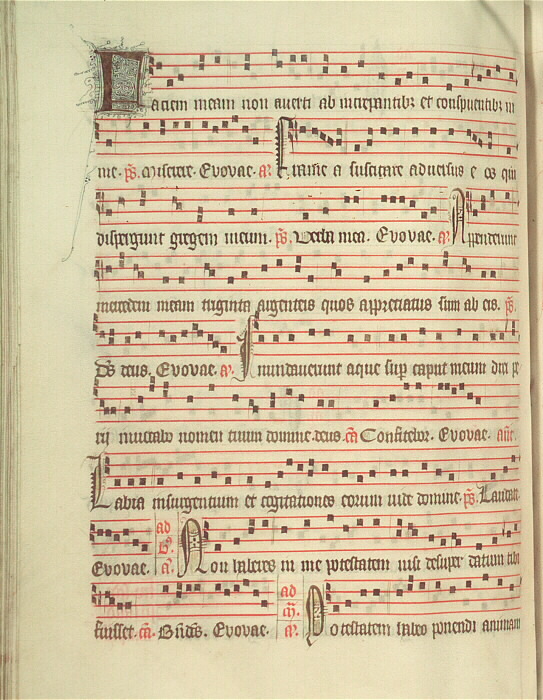 Faciem meam non averti ab increpantibz et conspuentibz in
me. ps. Miserere. Evovae. a. Framie a suscitare adversus e os qui
dispergunt gregem meum. ps. Verba mea. Evovae. a. Appenderunt
mercedem meam triginta argenteis quos appreciatus sum ab eis. ps.
Ds deus. Evovae. a. Inundaverunt aque sup caput meum dixi pe
rii invocabo nomen tuum domine deus. ca Confitebor. Evovae. ane.
Labia insurgentium et cogitationes eorum vide domine. ps. Laudate.
Evovae. ad a. Non haberes in me potestatem nisi desuper datum tibi
fuisset. ca. Evovae. ad a. Potestatem habeo ponendi animam